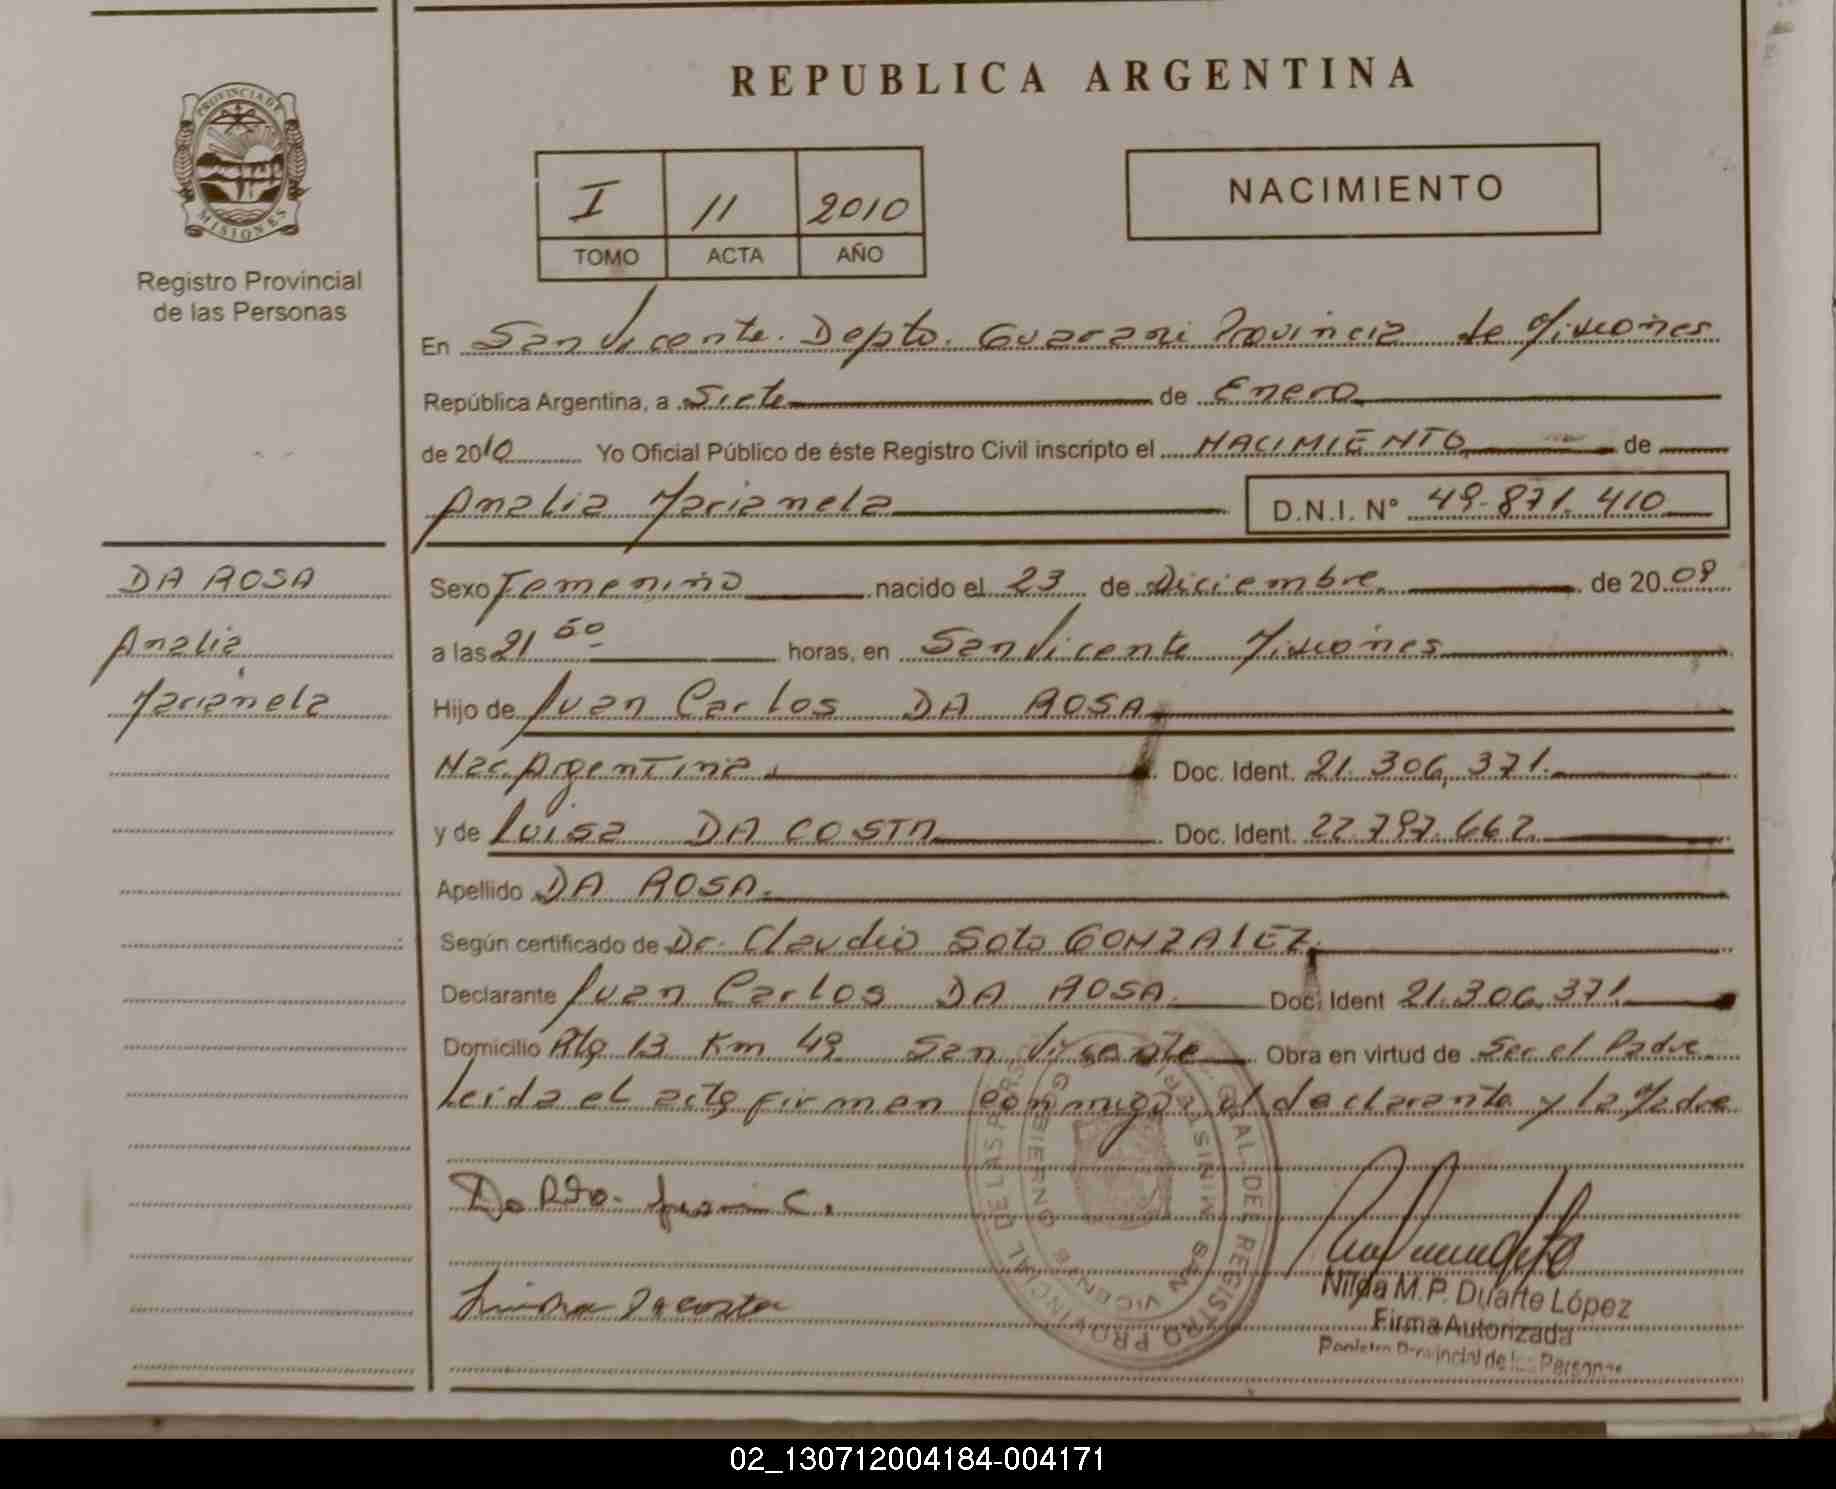 PROVINCIA DE
MISIONES
Registro Provincial
de las Personas
REPUBLICA ARGENTINA
I 11 2010
TOMO ACTA AÑO
NACIMIENTO
En San Vicente. Depto. Guarani Provincia de Misiones
República Argentina, a Siete de Enero
de 2010 Yo Oficial Público de éste Registro Civil inscripto el NACIMIENTO de
Analia Marianela D.N.I. N° 49.871.410
DA ROSA
Analia
Marianela
Sexo Femenino nacido el 23 de Diciembre de 2009
a las 21 50 horas, en San Vicente Misiones
Hijo de Juan Carlos DA ROSA
Nac. Argentina Doc. Ident. 21.306.371.
y de Luisa DA COSTA Doc. Ident. 22.797.662.
Apellido DA ROSA.
Según certificado de Dr. Claudio Soto GONZALEZ.
Declarante Juan Carlos DA ROSA Doc. Ident 21.306.371
Domicilio Rta 13 Km 49 San Vicente Obra en virtud de Ser el Padre
Leida el acta firman conmigo, el declarante y la Madre
REGISTRO PROVINCIAL DE LAS
SAN VICENTE
GOBIERNO
Nilda M.P. Duarte López
Firma Autorizada
Registro Provincial de las Personas
02_130712004184-004171